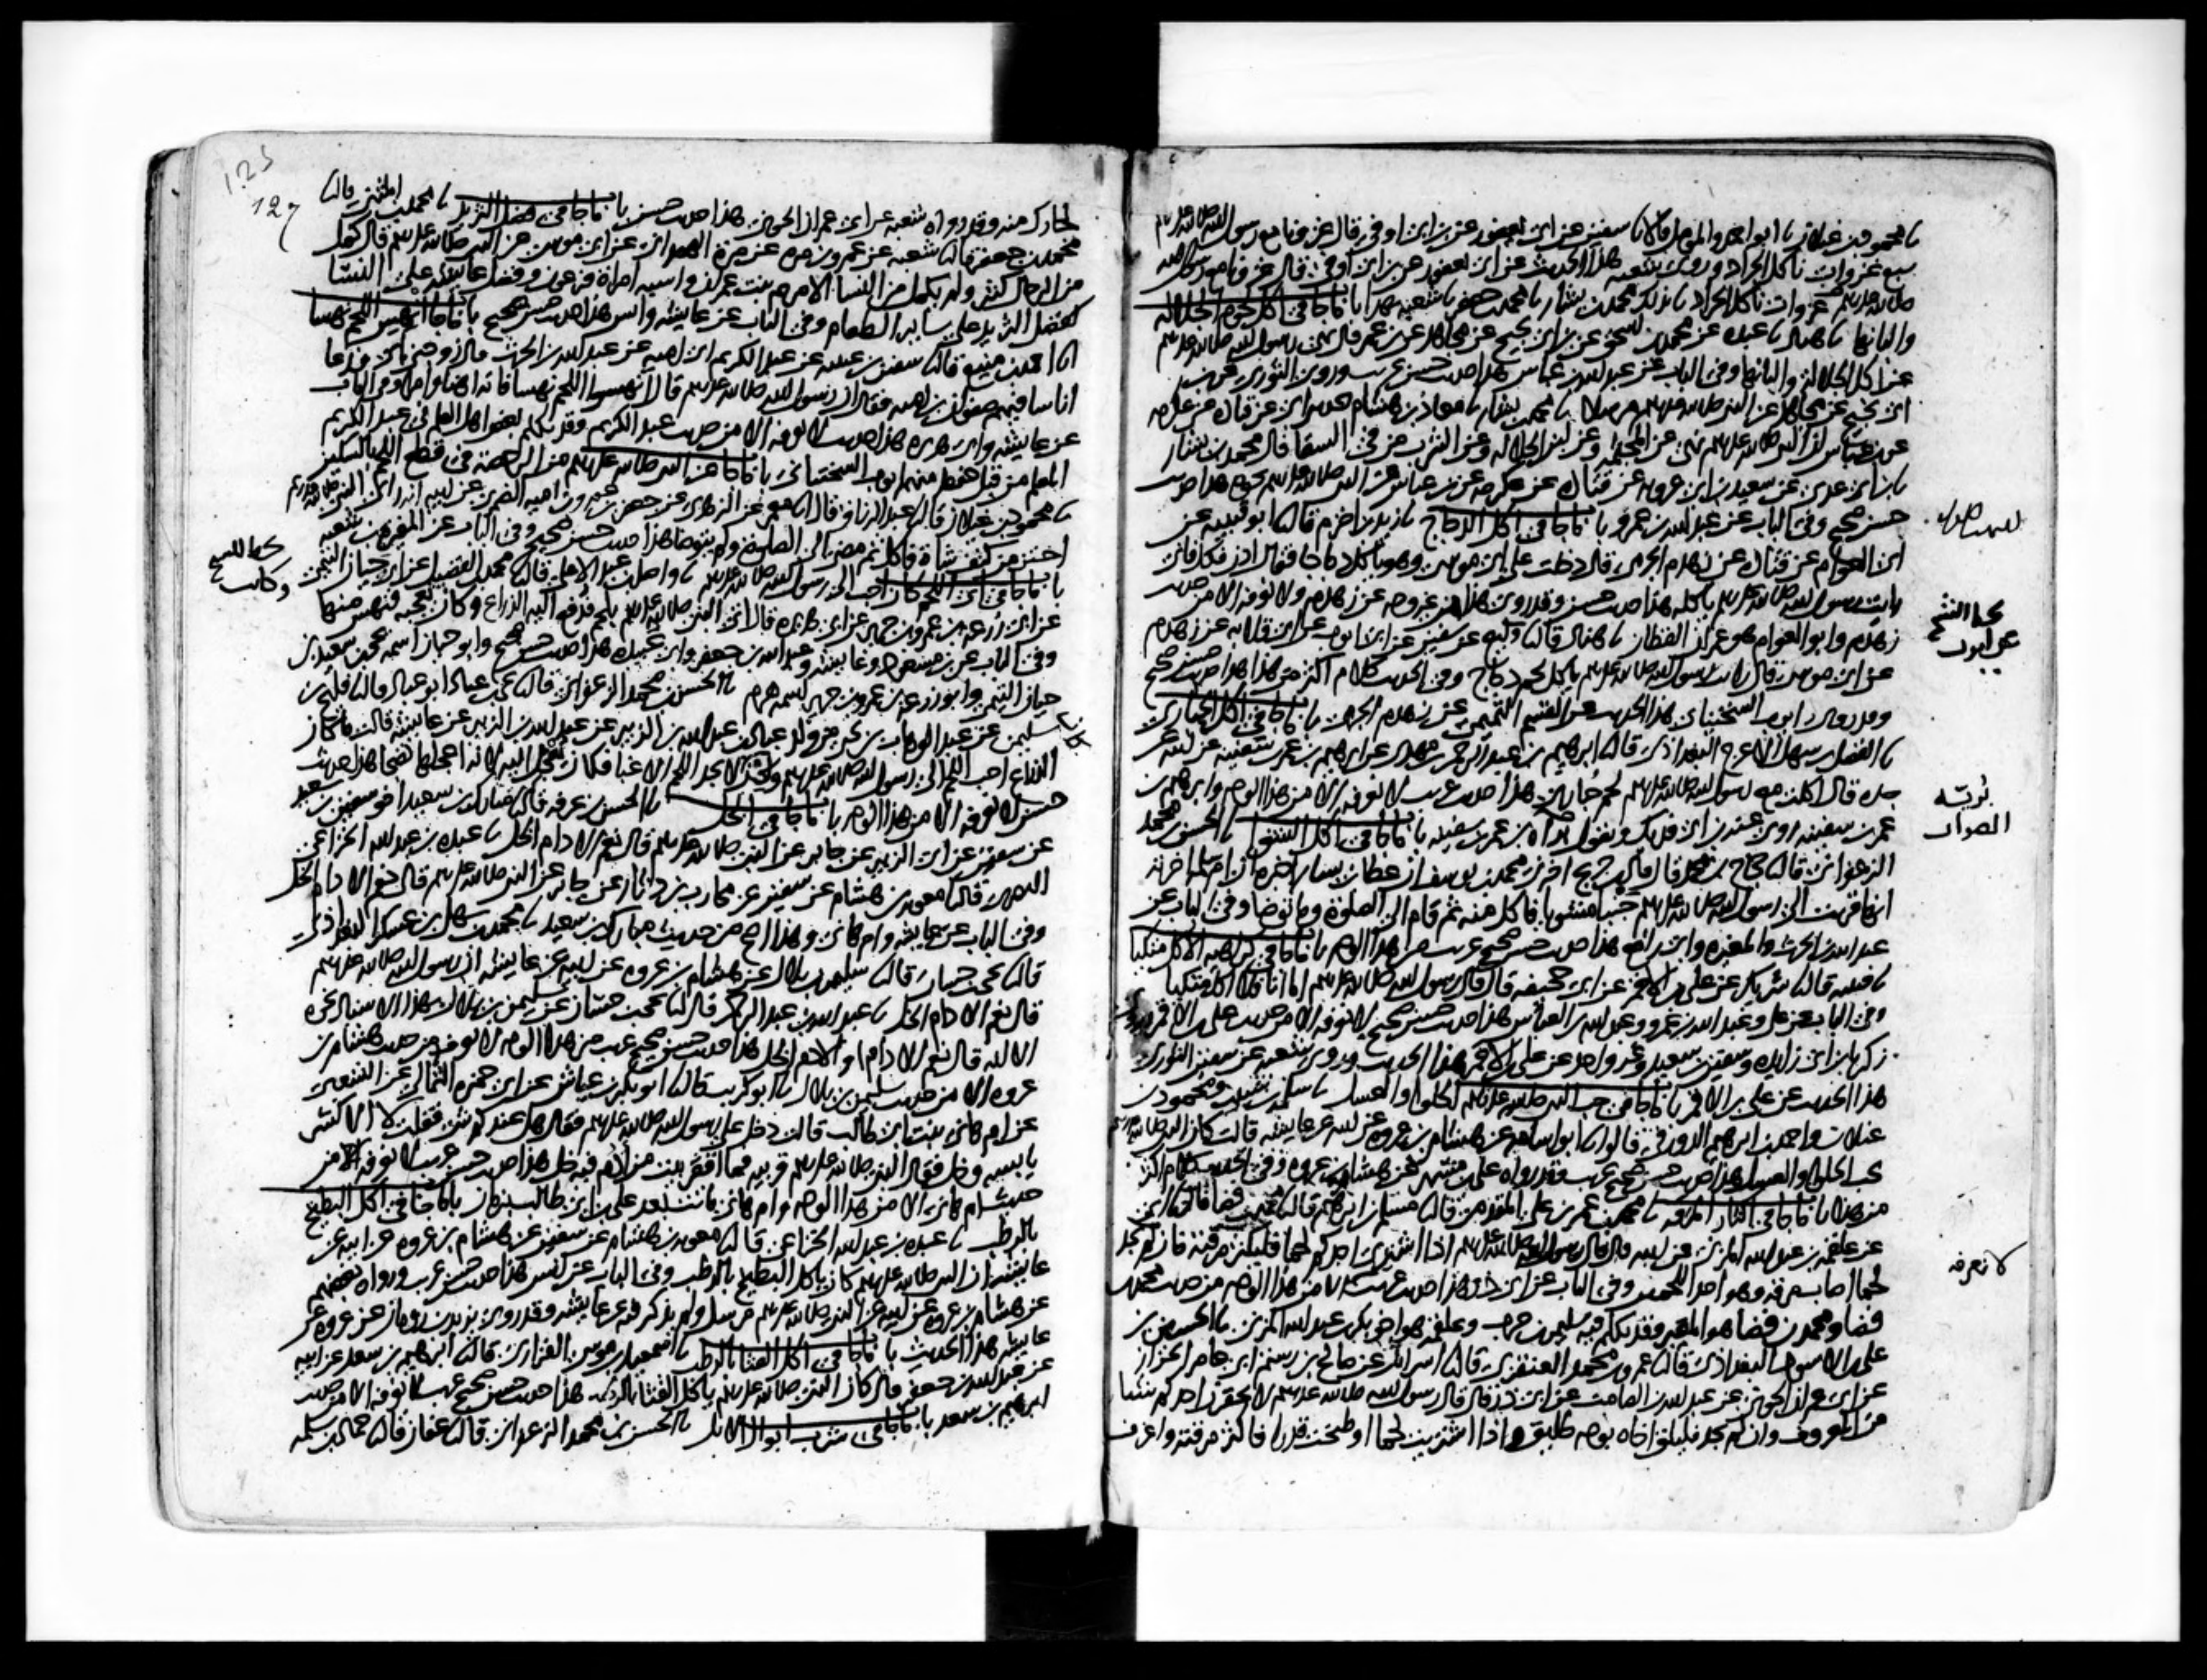 نا محمود بن غيلان نا ابو احمد والمؤمل قالا نا سفين عن ابى يعفور عن ابن ابى اوفى قال غزونا مع رسول الله صلى الله عليه وسلم
سبع غزوات ناكل الجراد وروى شعبه هذا الحديث عن ابى يعفور عن ابن ابى اوفى قال غزونا مع رسول الله
صلى الله عليه وسلم غزوات ناكل الجراد نا بذلك محمد بن بشار نا محمد بن جعفر نا شعبه بهذا باب ما جا فى اكل لحوم الجلاله
والبانها نا هناد نا عبده عن محمد بن اسحق عن ابن ابى نجيح عن مجاهد عن ابن عمر قال نهى رسول الله صلى الله عليه وسلم
عن اكل الجلاله والبانها وفى الباب عن عبد الله بن عباس هذا حديث حسن غريب وروى الثورى عن
ابن ابى نجيح عن مجاهد عن النبى صلى الله عليه وسلم مرسلا نا محمد بن بشار نا معاذ بن هشام حدثنى ابى عن قتاده عن عكرمه
عن ابن عباس ان النبى صلى الله عليه وسلم نهى عن المجثمه وعن لبن الجلاله وعن الشرب من فى السقا قال محمد بن بشار
نا ابن ابى عدى عن سعيد بن ابى عروبه عن قتاده عن عكرمه عن ابن عباس عن النبى صلى الله عليه وسلم نحوه هذا حديث
حسن صحيح وفى الباب عن عبد الله بن عمرو باب ما جا فى اكل الدجاج نا زيد بن اخزم قال نا ابو قتيبه عن
ابى العوام عن قتاده عن زهدم الجرمى قال دخلت على ابى موسى وهو ياكل دجاجا فقال ادن فكل فانى
رايت رسول الله صلى الله عليه وسلم ياكله هذا حديث حسن وقد روى هذا من غير وجه عن زهدم ولا نعرفه الا من حديث
زهدم وابو العوام هو عمران القطان نا هناد قال نا وكيع عن سفين عن ايوب عن ابى قلابه عن زهدم
عن ابى موسى قال رايت رسول الله صلى الله عليه وسلم ياكل لحم دجاج وفى الحديث كلام اكثر من هذا هذا حديث حسن صحيح
وقد روى ايوب السختيانى هذا الحديث عن القسم التميمى عن زهدم الجرمى باب ما جا فى اكل الحبارى
نا الفضل بن سهل الاعرج البغداذى قال نا ابرهيم بن عبد الرحمن بن مهدى عن ابرهيم بن عمر بن سفينه عن ابيه عن
جده قال اكلت مع رسول الله صلى الله عليه وسلم لحم حبارى هذا حديث غريب لا نعرفه الا من هذا الوجه وابرهيم بن
عمر بن سفينه روى عنه ابن ابى فديك ويقول بريه بن عمر بن سفينه باب ما جا فى اكل الشوا نا الحسن بن محمد
الزعفرانى قال نا حجاج بن محمد قال قال ابن جريج اخبرنى محمد بن يوسف ان عطا بن يسار اخبره ان ام سلمه اخبرته
انها قربت الى رسول الله صلى الله عليه وسلم جنبا مشويا فاكل منه ثم قام الى الصلوه وما توضا وفى الباب عن
عبد الله بن الحرث والمغيره وابى رافع هذا حديث حسن صحيح غريب من هذا الوجه باب ما جا فى كراهيه الاكل متكيا
نا قتيبه قال نا شريك عن على بن الاقمر عن ابى جحيفه قال قال رسول الله صلى الله عليه وسلم اما انا فلا اكل متكيا
وفى الباب عن على وعبد الله بن عمرو وعبد الله بن العباس هذا حديث حسن صحيح لا نعرفه الا من حديث على بن الاقمر
زكريا بن ابى زايده وسفين بن سعيد وغير واحد عن على بن الاقمر هذا الحديث وروى شعبه عن سفين الثورى
هذا الحديث عن على بن الاقمر باب ما جا فى حب النبى صلى الله عليه وسلم الحلوا والعسل نا سلمه بن شبيب ومحمود بن
غيلان واحمد بن ابرهيم الدورقى قالوا نا ابو اسامه عن هشام بن عروه عن ابيه عن عايشه قالت كان النبى صلى الله عليه وسلم
يحب الحلوا والعسل هذا حديث حسن صحيح غريب وقد رواه على بن مسهر عن هشام بن عروه وفى الحديث كلام اكثر
من هذا باب ما جا فى اكثار المرقه نا محمد بن عمر بن على المقدمى قال نا مسلم بن ابرهيم قال نا محمد بن فضا قال نا ابى
عن علقمه بن عبد الله المزنى عن ابيه قال قال رسول الله صلى الله عليه وسلم اذا اشترى احدكم لحما فليكثر مرقته فان لم يجد
لحما اصاب مرقه وهو احد اللحمين وفى الباب عن ابى ذر هذا حديث غريب لا نعرفه الا من هذا الوجه من حديث محمد بن
فضا ومحمد بن فضا هو المعبر وقد تكلم فيه سليمن بن حرب وعلقمه هو اخو بكر بن عبد الله المزنى نا الحسين بن
على بن الاسود البغداذى قال نا عمرو بن محمد العنقزى قال نا اسرائل عن صالح بن رستم ابى عامر الخزاز
عن ابى عمران الجونى عن عبد الله بن الصامت عن ابى ذر قال قال رسول الله صلى الله عليه وسلم لا يحقرن احدكم شيئا
من المعروف وان لم يجد فليلق اخاه بوجه طليق واذا اشتريت لحما او طبخت قدرا فاكثر مرقته واغرف
لا نعرفه
127
لجارك منه وقد رواه شعبه عن ابى عمران الجونى هذا حديث حسن باب ما جا فى فضل الثريد نا محمد بن المثنى قال نا
محمد بن جعفر قال نا شعبه عن عمرو بن مره عن مره الهمدانى عن ابى موسى عن النبى صلى الله عليه وسلم قال كمل
من الرجال كثير ولم يكمل من النسا الا مريم بنت عمران واسيه امراه فرعون وفضل عايشه على النسا
كفضل الثريد على ساير الطعام وفى الباب عن عايشه وانس هذا حديث حسن صحيح باب ما جا انهس اللحم نهسا
نا احمد بن منيع قال نا سفين بن عيينه عن عبد الكريم ابى اميه عن عبد الله بن الحرث قال زوجنى ابى فدعا
اناسا فيهم صفوان بن اميه فقال ان رسول الله صلى الله عليه وسلم قال انهسوا اللحم نهسا فانه اهنا وامرا وفى الباب
عن عايشه وابى هريره هذا حديث لا نعرفه الا من حديث عبد الكريم وقد تكلم بعض اهل العلم فى عبد الكريم
المعلم من قبل حفظه منهم ايوب السختيانى باب ما جا عن النبى صلى الله عليه وسلم من الرخصه فى قطع اللحم بالسكين
نا محمود بن غيلان قال نا عبد الرزاق قال انا معمر عن الزهرى عن جعفر بن عمرو بن اميه الضمرى عن ابيه انه راى النبى صلى الله عليه وسلم
احتز من كتف شاه فاكل ثم مضى الى الصلوه ولم يتوضا هذا حديث حسن صحيح وفى الباب عن المغيره بن شعبه
باب ما جا فى اى اللحم كان احب الى رسول الله صلى الله عليه وسلم نا واصل بن عبد الاعلى قال نا محمد بن الفضيل عن ابى حيان التيمى
عن ابى زرعه بن عمرو بن جرير عن ابى هريره قال اتى النبى صلى الله عليه وسلم بلحم فدفع اليه الذراع وكان يعجبه فنهس منها
وفى الباب عن ابن مسعود وعايشه وعبد الله بن جعفر وابى عبيده هذا حديث حسن صحيح وابو حيان اسمه يحيى بن سعيد بن
حيان التيمى وابو زرعه بن عمرو بن جرير اسمه هرم نا الحسن بن محمد الزعفرانى قال نا يحيى بن عباد ابو عباد قال نا فليح بن
سليمن عن عبد الوهاب بن يحيى من ولد عباد بن عبد الله بن الزبير عن عبد الله بن الزبير عن عايشه قالت ما كان
الذراع احب اللحم الى رسول الله صلى الله عليه وسلم ولكن كان لا يجد اللحم الا غبا فكان يعجل اليه لانه اعجلها نضجا هذا حديث
حسن لا نعرفه الا من هذا الوجه باب ما جا فى الخل نا الحسن بن عرفه قال نا مبارك بن سعيد اخو سفين بن سعيد
عن سفين عن ابى الزبير عن جابر عن النبى صلى الله عليه وسلم قال نعم الادام الخل نا عبده بن عبد الله الخزاعى
البصرى قال نا معويه بن هشام عن سفين عن محارب بن دثار عن جابر عن النبى صلى الله عليه وسلم قال نعم الادام الخل
وفى الباب عن عايشه وام هانى وهذا اصح من حديث مبارك بن سعيد نا محمد بن سهل بن عسكر البغداذى
قال نا يحيى بن حسان قال نا سليمن بن بلال عن هشام بن عروه عن ابيه عن عايشه ان رسول الله صلى الله عليه وسلم
قال نعم الادام الخل نا عبد الله بن عبد الرحمن قال نا يحيى بن حسان عن سليمن بن بلال بهذا الاسناد نحوه
الا انه قال نعم الادام او الادم الخل هذا حديث حسن صحيح غريب من هذا الوجه لا نعرفه من حديث هشام بن
عروه الا من حديث سليمن بن بلال نا ابو كريب قال نا ابو بكر بن عياش عن ابى حمزه الثمالى عن الشعبى
عن ام هانى بنت ابى طالب قالت دخل على رسول الله صلى الله عليه وسلم فقال هل عندكم شى فقلت لا الا كسر
يابسه وخل فقال النبى صلى الله عليه وسلم قربيه فما اقفر بيت من ادم فيه خل هذا حديث حسن غريب لا نعرفه الا من
حديث ام هانى الا من هذا الوجه وام هانى ماتت بعد على بن ابى طالب بزمان باب ما جا فى اكل البطيخ
بالرطب نا عبده بن عبد الله الخزاعى قال نا معويه بن هشام عن سفين عن هشام بن عروه عن ابيه عن
عايشه ان النبى صلى الله عليه وسلم كان ياكل البطيخ بالرطب وفى الباب عن انس هذا حديث حسن غريب ورواه بعضهم
عن هشام بن عروه عن ابيه عن النبى صلى الله عليه وسلم مرسل ولم يذكر فيه عن عايشه وقد روى يزيد بن رومان عن عروه عن
عايشه هذا الحديث باب ما جا فى اكل القثا بالرطب نا اسمعيل بن موسى الفزارى قال نا ابرهيم بن سعد عن ابيه
عن عبد الله بن جعفر قال كان النبى صلى الله عليه وسلم ياكل القثا بالرطب هذا حديث حسن صحيح غريب لا نعرفه الا من حديث
ابرهيم بن سعد باب ما جا فى شرب ابوال الابل نا الحسن بن محمد الزعفرانى قال نا عفان قال نا حماد بن سلمه